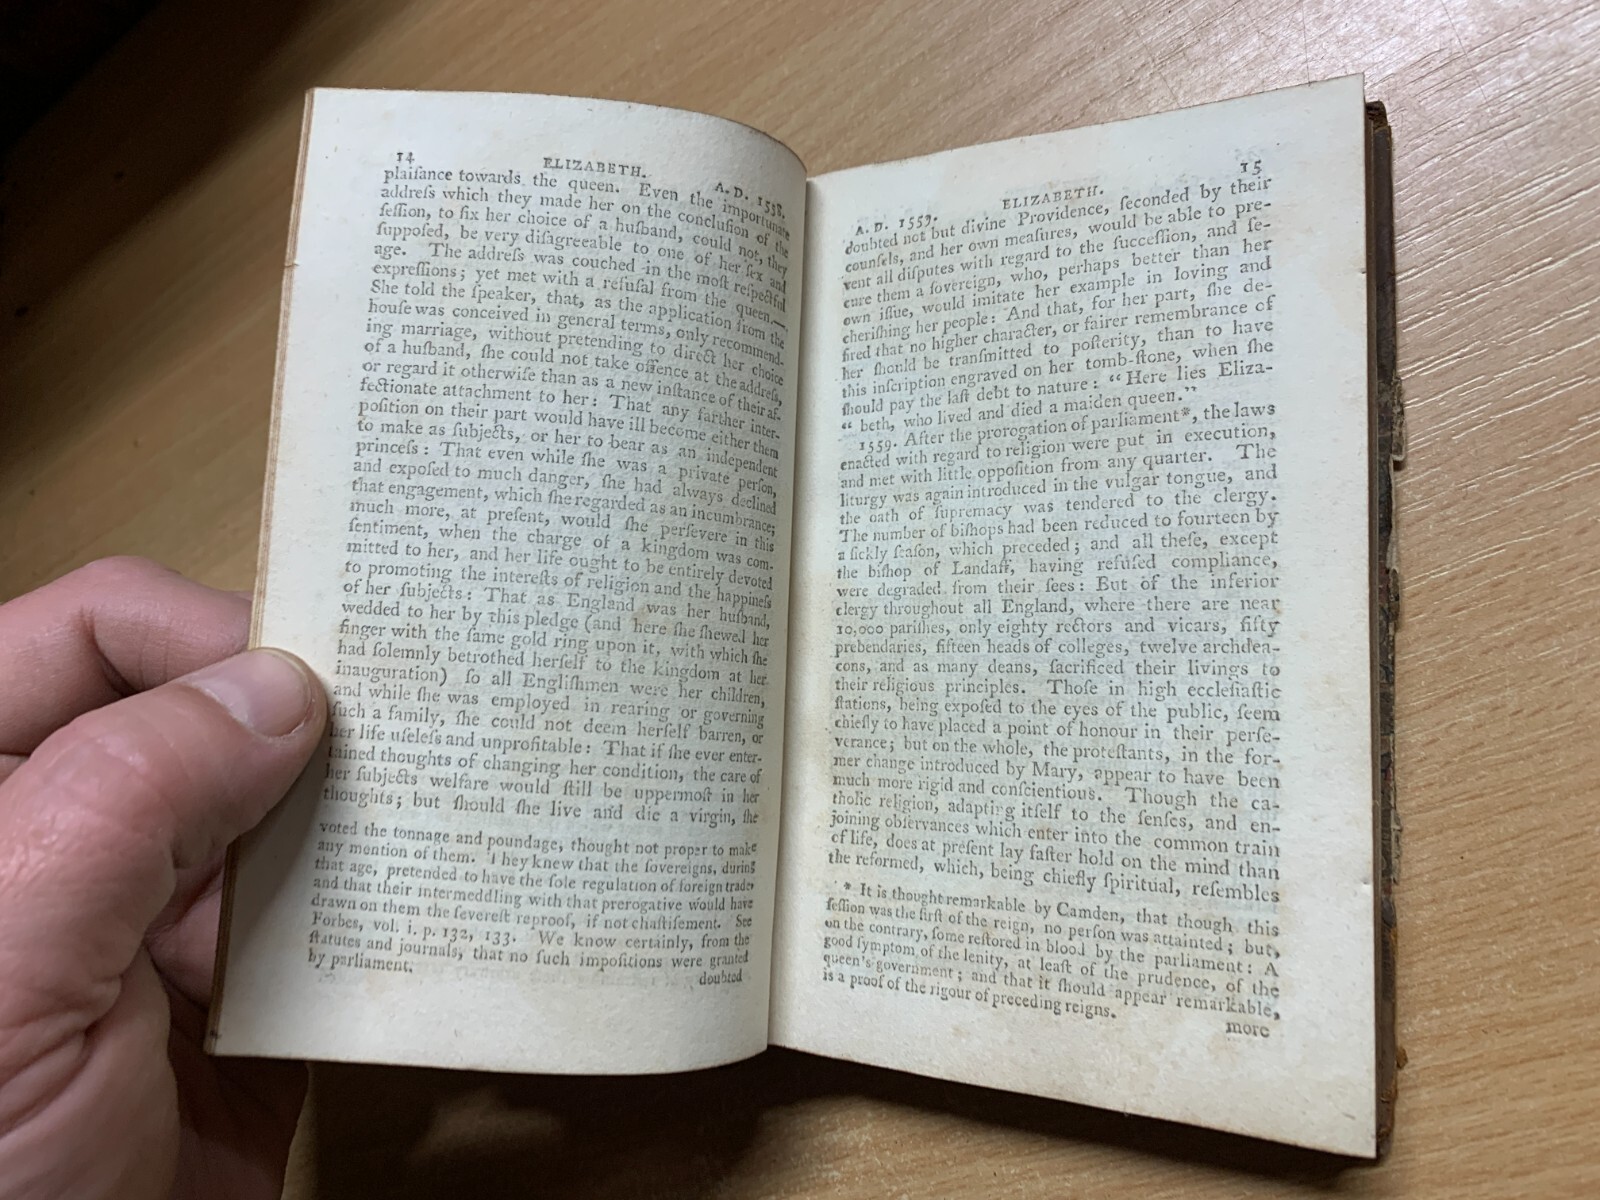 14
ELIZABETH.
A. D. 1558.
plaiſance towards the queen. Even the importunate
addreſs which they made her on the concluſion of the
ſeſſion, to fix her choice of a huſband, could not, they
ſuppoſed, be very diſagreeable to one of her ſex and
age. The addreſs was couched in the moſt reſpectful
expreſſions; yet met with a refuſal from the queen.—
She told the ſpeaker, that, as the application from the
houſe was conceived in general terms, only recommend-
ing marriage, without pretending to direct her choice
of a huſband, ſhe could not take offence at the addreſs,
or regard it otherwiſe than as a new inſtance of their af-
fectionate attachment to her: That any farther inter-
poſition on their part would have ill become either them
to make as ſubjects, or her to bear as an independent
princeſs: That even while ſhe was a private perſon,
and expoſed to much danger, ſhe had always declined
that engagement, which ſhe regarded as an incumbrance;
much more, at preſent, would ſhe perſevere in this
ſentiment, when the charge of a kingdom was com-
mitted to her, and her life ought to be entirely devoted
to promoting the intereſts of religion and the happineſs
of her ſubjects: That as England was her huſband,
wedded to her by this pledge (and here ſhe ſhewed her
finger with the ſame gold ring upon it, with which ſhe
had ſolemnly betrothed herſelf to the kingdom at her
inauguration) ſo all Engliſhmen were her children,
and while ſhe was employed in rearing or governing
ſuch a family, ſhe could not deem herſelf barren, or
her life uſeleſs and unprofitable: That if ſhe ever enter-
tained thoughts of changing her condition, the care of
her ſubjects welfare would ſtill be uppermoſt in her
thoughts; but ſhould ſhe live and die a virgin, ſhe
voted the tonnage and poundage, thought not proper to make
any mention of them. They knew that the ſovereigns, during
that age, pretended to have the ſole regulation of foreign trade,
and that their intermeddling with that prerogative would have
drawn on them the ſevereſt reproof, if not chaſtiſement. See
Forbes, vol. i. p. 132, 133. We know certainly, from the
ſtatutes and journals, that no ſuch impoſitions were granted
by parliament.
doubted
A. D. 1559.
ELIZABETH.
15
doubted not but divine Providence, ſeconded by their
counſels, and her own meaſures, would be able to pre-
vent all diſputes with regard to the ſucceſſion, and ſe-
cure them a ſovereign, who, perhaps better than her
own iſſue, would imitate her example in loving and
cheriſhing her people: And that, for her part, ſhe de-
ſired that no higher character, or fairer remembrance of
her ſhould be tranſmitted to poſterity, than to have
this inſcription engraved on her tomb-ſtone, when ſhe
ſhould pay the laſt debt to nature: “Here lies Eliza-
“ beth, who lived and died a maiden queen.”
1559. After the prorogation of parliament*, the laws
enacted with regard to religion were put in execution,
and met with little oppoſition from any quarter. The
liturgy was again introduced in the vulgar tongue, and
the oath of ſupremacy was tendered to the clergy.
The number of biſhops had been reduced to fourteen by
a ſickly ſeaſon, which preceded; and all theſe, except
the biſhop of Landaff, having refuſed compliance,
were degraded from their ſees: But of the inferior
clergy throughout all England, where there are near
10,000 pariſhes, only eighty rectors and vicars, fifty
prebendaries, fifteen heads of colleges, twelve archdea-
cons, and as many deans, ſacrificed their livings to
their religious principles. Thoſe in high eccleſiaſtic
ſtations, being expoſed to the eyes of the public, ſeem
chiefly to have placed a point of honour in their perſe-
verance; but on the whole, the proteſtants, in the for-
mer change introduced by Mary, appear to have been
much more rigid and conſcientious. Though the ca-
tholic religion, adapting itſelf to the ſenſes, and en-
joining obſervances which enter into the common train
of life, does at preſent lay faſter hold on the mind than
the reformed, which, being chiefly ſpiritual, reſembles
* It is thought remarkable by Camden, that though this
ſeſſion was the firſt of the reign, no perſon was attainted; but,
on the contrary, ſome reſtored in blood by the parliament: A
good ſymptom of the lenity, at leaſt of the prudence, of the
queen's government; and that it ſhould appear remarkable,
is a proof of the rigour of preceding reigns.
more